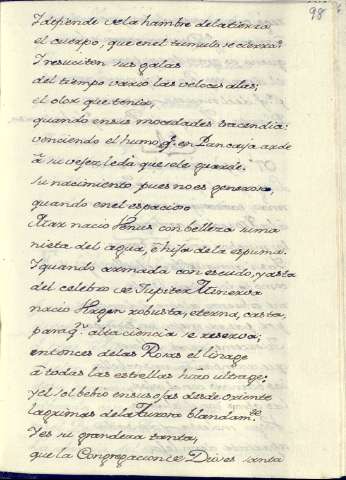 98
Y defiende de la hambre de la tierra
el cuerpo, que en el tumulo se cierra?
Y resuciten sus galas
del tiempo vario las veloces alas;
el olor que tenia,
quando en sus mocedades tracendia;
venciendo el humo q.e en Pancaya arde
â su vejez leda que se le guarde.
su nacimiento pues no es generoso,
quando en el espacioso
Mar nacio Venus con belleza suma
nieta del agua, è hija de la espuma.
Y quando armada con escudo, y asta
del celebro de Jupiter Minerva
nacio Virgen robusta, eterna, casta,
para q.n alta ciencia se reserva;
entonces de las Rosas el linage
â todas las estrellas hizo ultrage;
y el sol bebio en sus ojas desde oriente
lagrimas de la Aurora blandam.te
Y es su grandeza tanta,
que la Congregacion de Dioses santa